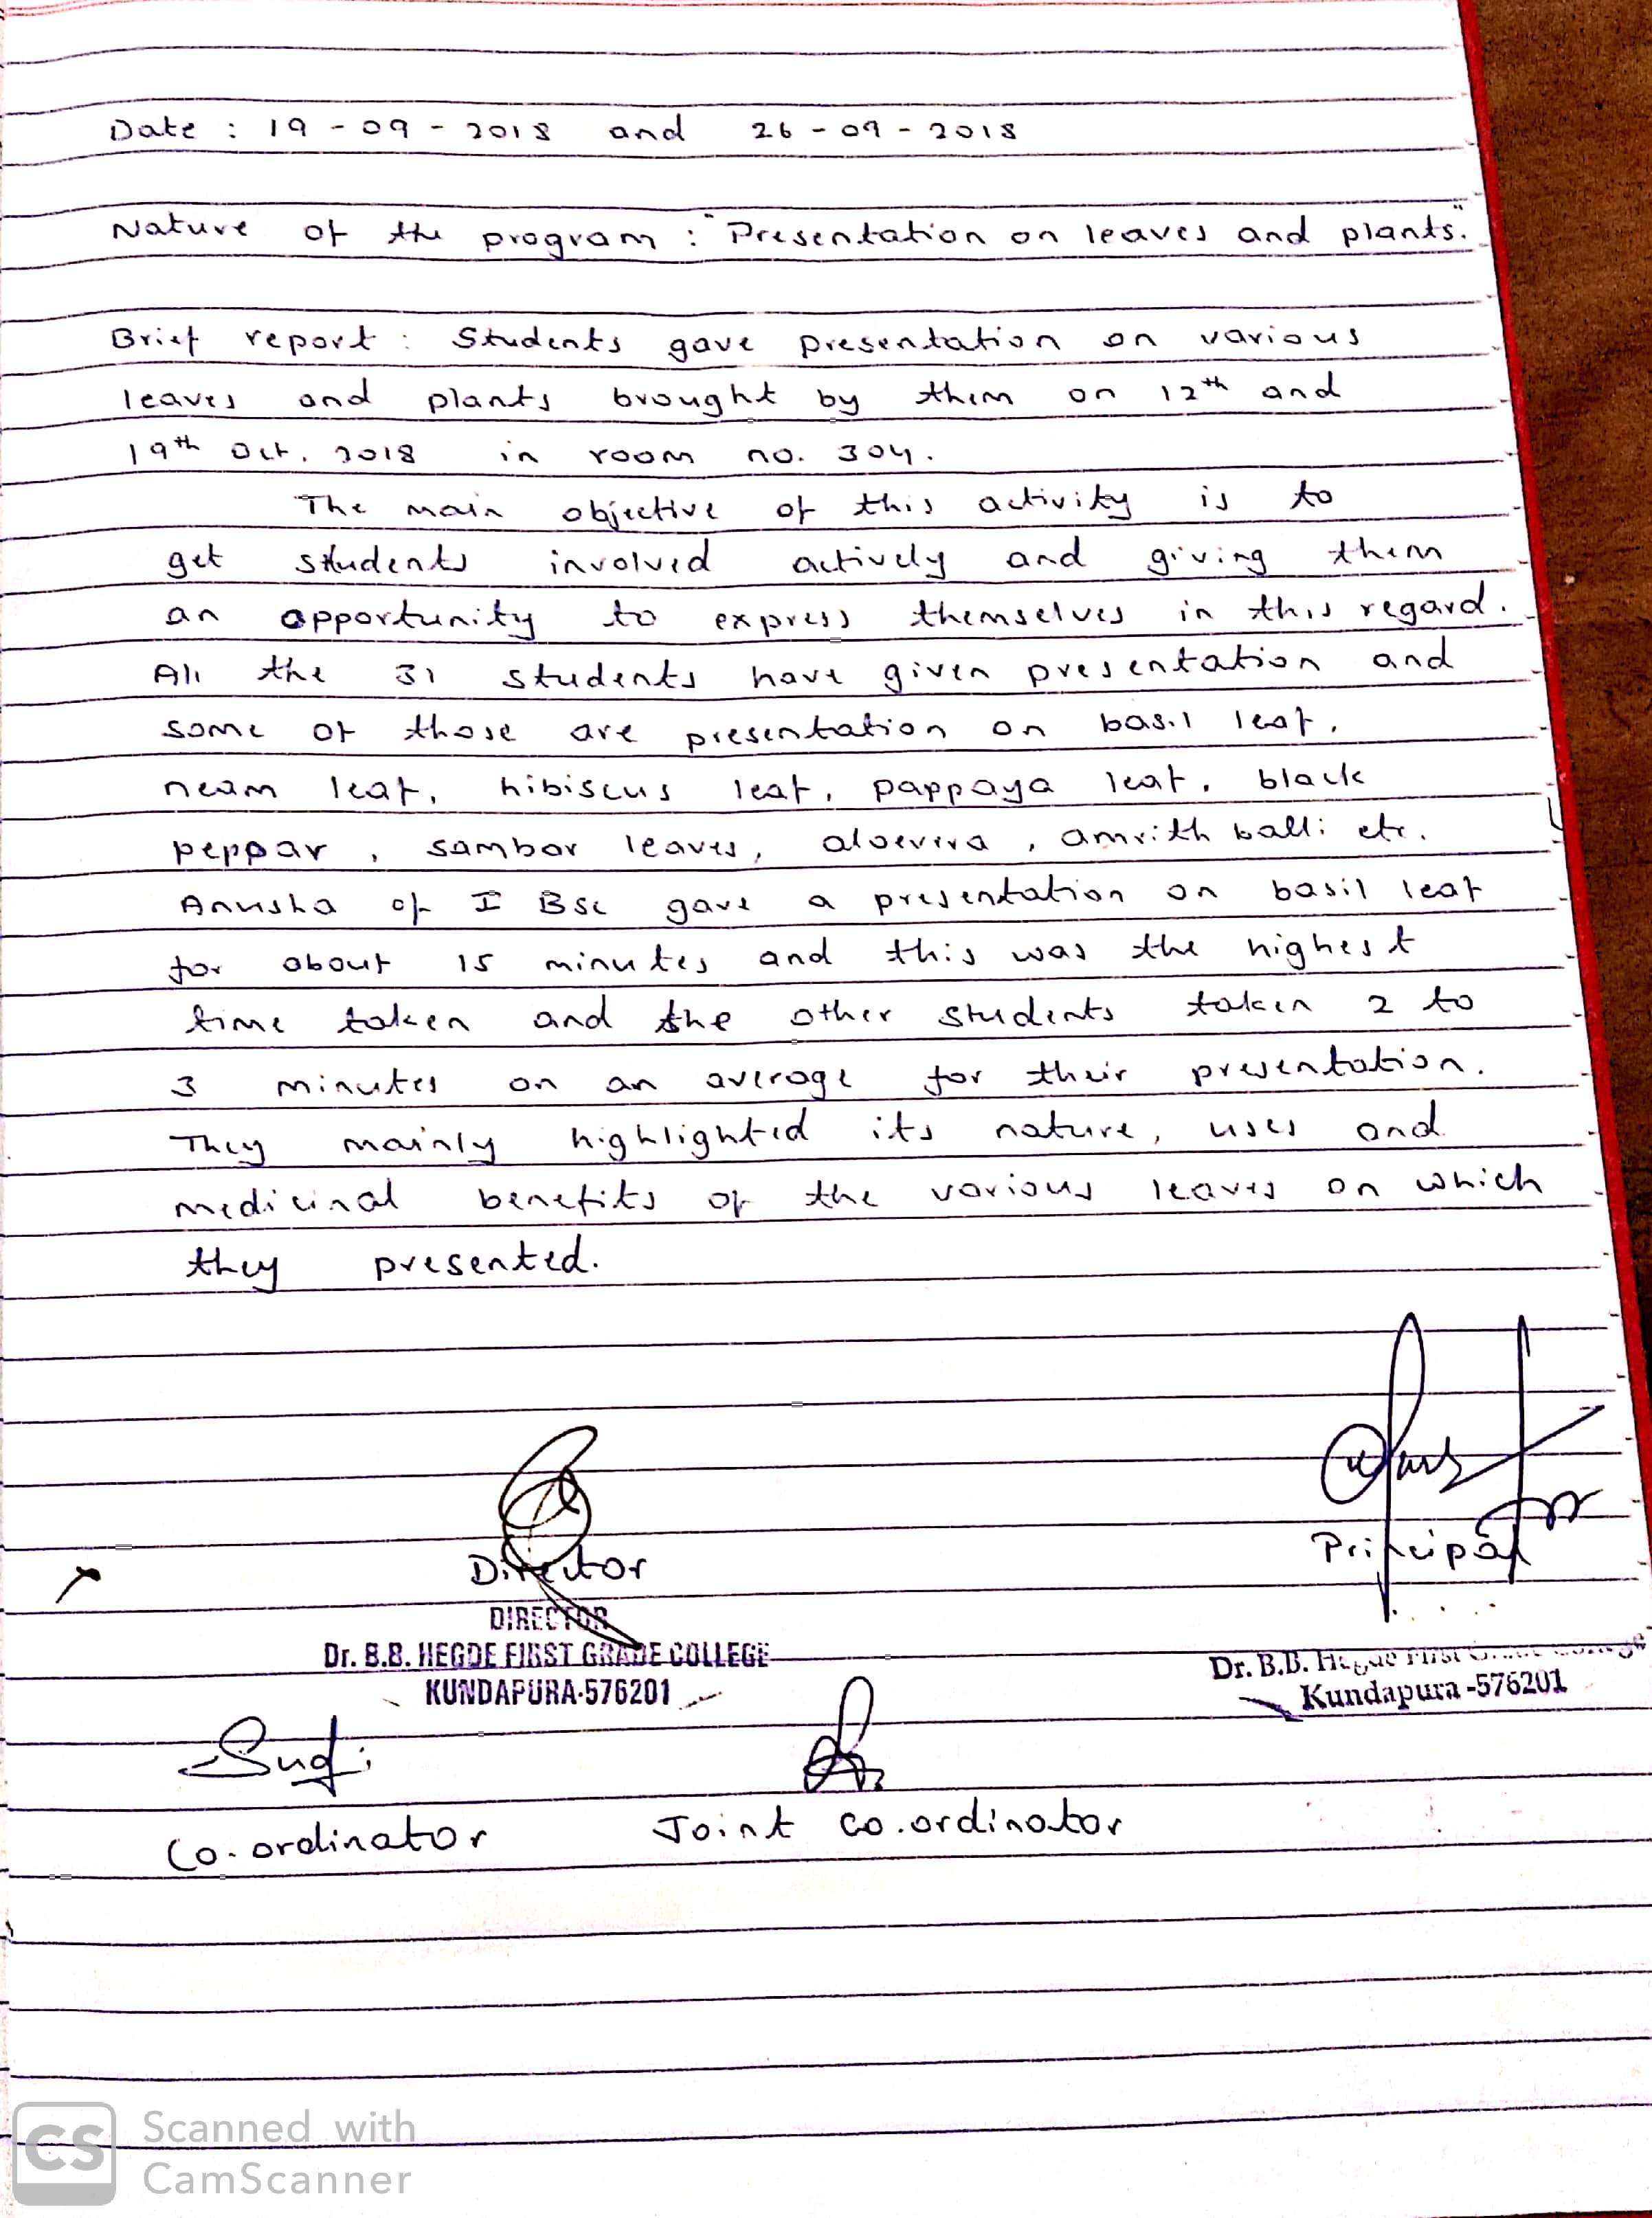 Date : 19 - 09 - 2018 and 26 - 09 - 2018
Nature of the program : "Presentation on leaves and plants".
Brief report : Students gave presentation on various
leaves and plants brought by them on 12th and
19th Oct. 2018 in room no. 304.
The main objective of this activity is to
get students involved actively and giving them
an opportunity to express themselves in this regard.
All the 31 students have given presentation and
some of those are presentation on basil leaf,
neam leaf, hibiscus leaf, pappaya leaf, black
peppar, sambar leaves, aloevira, amrith balli etc.
Anusha of I BSc gave a presentation on basil leaf
for about 15 minutes and this was the highest
time taken and the other students taken 2 to
3 minutes on an average for their presentation.
They mainly highlighted its nature, uses and
medicinal benefits of the various leaves on which
they presented.
Director
Principal
DIRECTOR
Dr. B.B. HEGDE FIRST GRADE COLLEGE
KUNDAPURA-576201
Dr. B.B. Hegde First
Kundapura -576201
Co-ordinator
Joint Co.ordinator
CS Scanned with
CamScanner